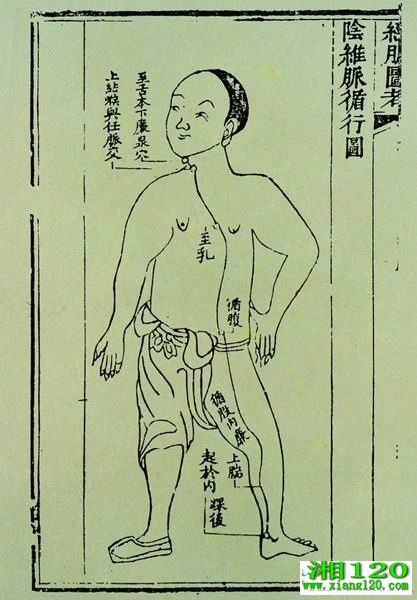 經脈圖考
陰維脈循行圖
至舌本下廉泉穴
上結喉與任脈交
至乳
循腹
循股內廉
上腨
起於內
踝後
湘120
www.xiang120.com